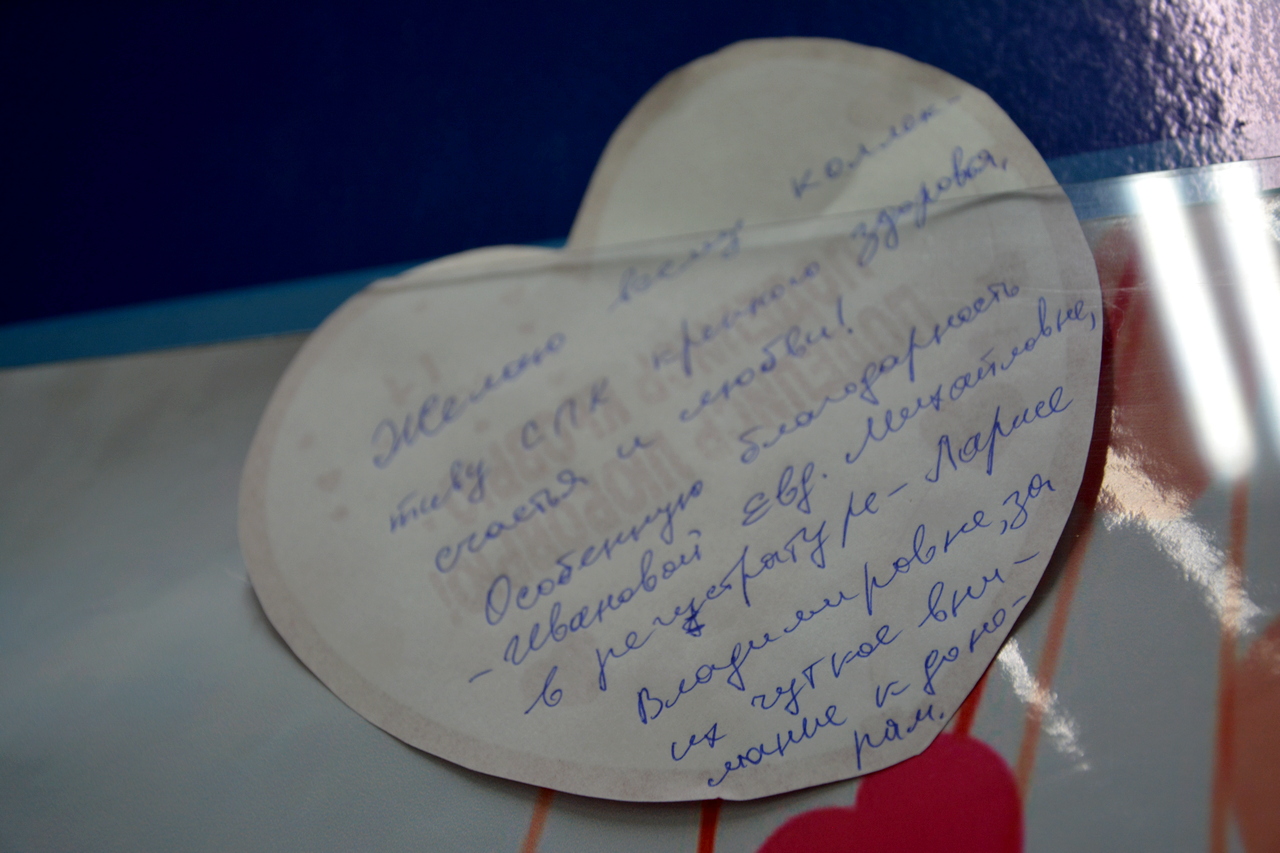 Желаю всему коллек-
тиву СПК крепкого здоровья,
счастья и любви!
Особенную благодарность
- Ивановой Евд. Михайловне,
в регистратуре - Ларисе
Владимировне, за
их чуткое вни-
мание к доно-
рам.